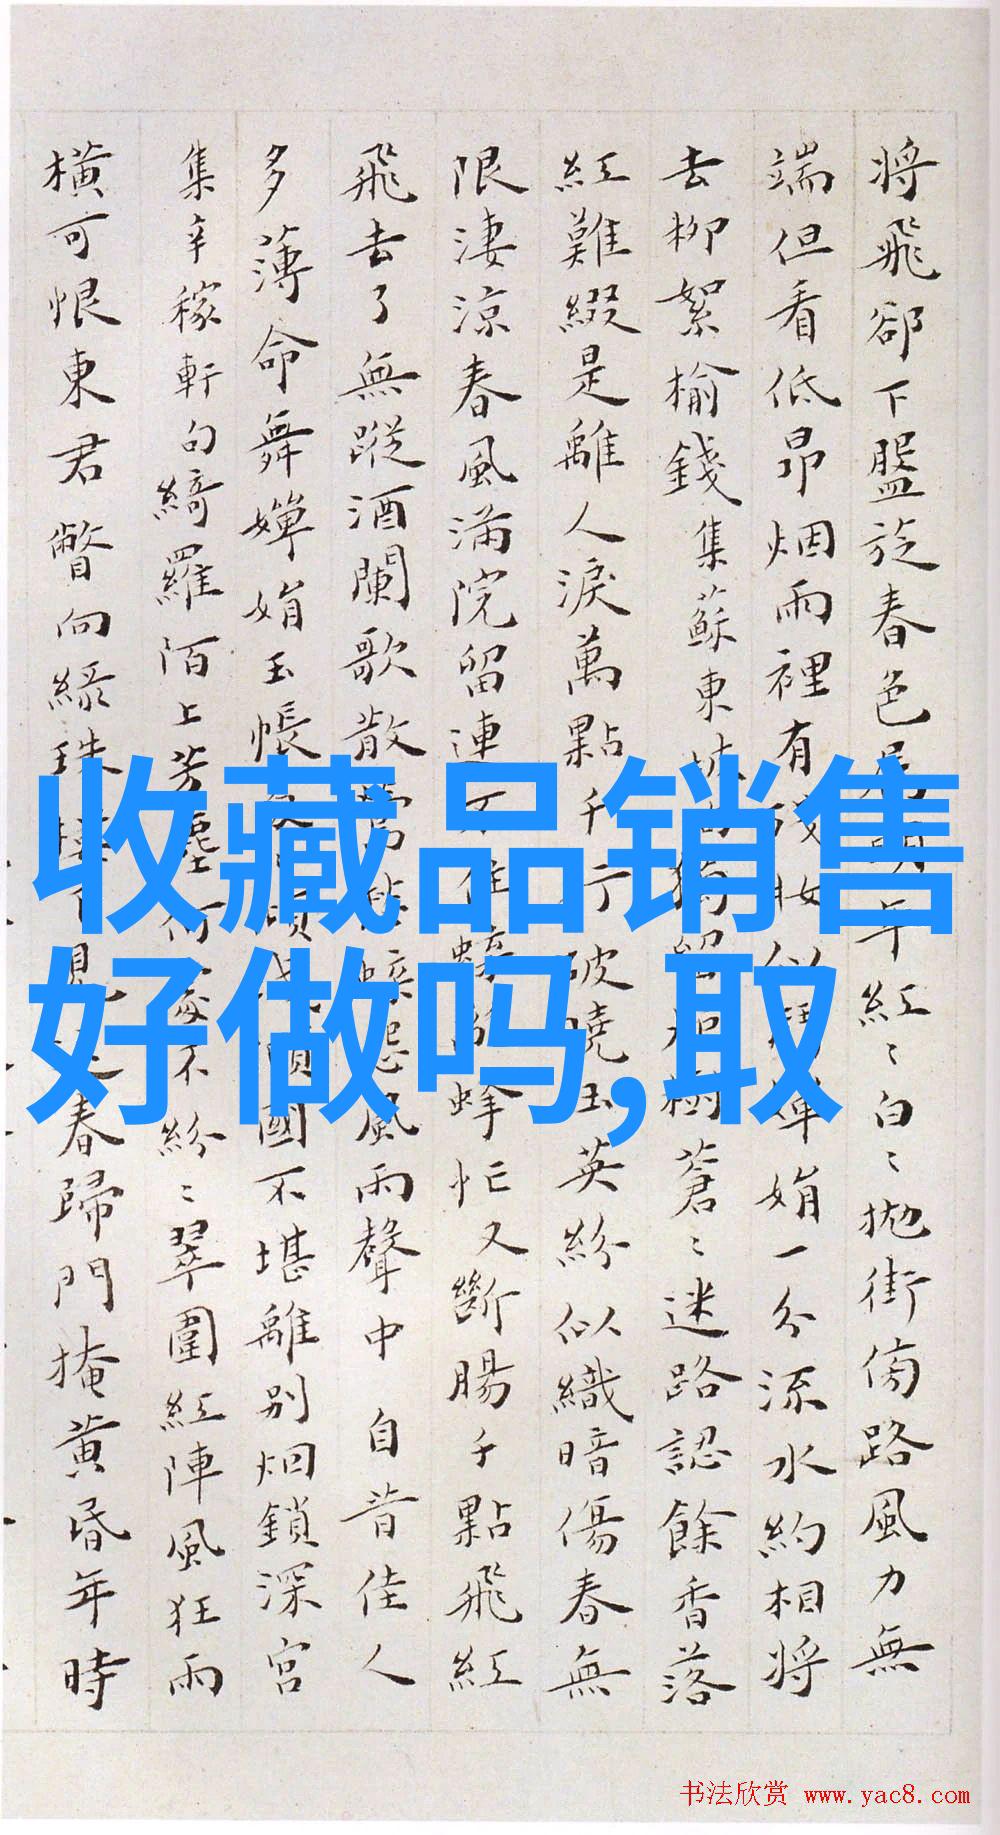 將飛卻下盤旋春色年紅〻白〻拋街傍路風力無
端但看低昂烟雨裡有殘妝似嬋娟一分流水約相將
去柳絮榆錢集蘇東坡樹蒼〻迷路認餘香落
紅難綴是離人淚萬點千行破曉玉英紛似織暗傷春無
限淒涼春風滿院留連不住蜂忙又斷腸千點飛紅
飛去了無蹤酒闌歌散風雨聲中 自昔佳人
多薄命舞嬋娟玉帳國不堪離別烟鎖深宮
集辛稼軒句綺羅陌上芳塵不紛〻翠圍紅陣風狂雨
橫可恨東君瞥向綠珠樓下見春歸門掩黃昏年時
收藏品销售
好做吗,取
书法欣赏 www.yac8.com